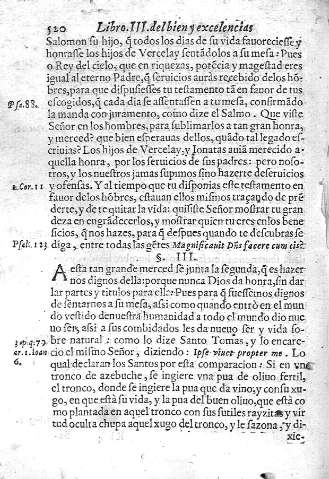 520 Libro.III.del bien y excelencias
Salomon su hijo, q̃ todos los dias de su vida fauoreciesse y
honrasse los hijos de Vercelay sentãdolos a su mesa: Pues
o Rey del cielo, que en riquezas, potẽcia y magestad eres
igual al eterno Padre, q̃ seruicios aurás recebido delos hõ-
bres, para que dispusiesses tu testamento tã en fauor de tus
Ps. 88. escogidos, q̃ cada dia se assentassen a tu mesa, confirmãdo
la manda con juramento, como dize el Salmo. Que viste
Señor en los hombres, para sublimarlos a tan gran honra,
y merced? que bien esperauas dellos, quãdo tal legado es-
criuias? Los hijos de Vercelay, y Ionatas auiã merecido a-
quella honra, por los seruicios de sus padres: pero noso-
tros, y los nuestros jamas supimos sino hazerte deseruicios
1. Cor. 11 y ofensas. Y al tiempo que tu disponias este testamento en
fauor delos hõbres, estauan ellos mismos traçando de prẽ-
derte, y de quitar la vida: quisiste Señor mostrar tu gran-
deza en engrãdecerlos, y mostrar quien tu eres enlos bene-
ficios, q̃ nos hazes, para q̃ despues quando te descubras se
Psal. 125 diga, entre todas las gẽtes Magnificauit Dñs facere cum eis?
§. III.
A esta tan grande merced se junta la segunda, q̃ es hazer
nos dignos della: porque nunca Dios da honra, sin dar
dar partes y titulos para ella: Pues para q̃ fuessemos dignos
de sentarnos a su mesa, assi como quando entrò en el mun-
do vestido de nuestra humanidad a todo el mundo dio nue
uo ser, assi a sus combidados les da nueuo ser y vida so-
3. p. q. 79. bre natural: como lo dize santo Tomas, y lo encare-
ar. 1. Ioan cio el mismo Señor, diziendo: Ipse viuet propter me. Lo
6. qual declaran los Santos por esta comparacion: Si en vn
tronco de azebuche, se ingiere vna pua de oliuo fertil,
el tronco, donde se ingiere la pua que da vino, y con su xu-
go, en que está su vida, y la pua del buen oliuo, que está co
mo plantada en aquel tronco con sus sutiles rayzitas y vir
tud oculta chupa aquel xugo del tronco, y le sazona, y di-
xic-